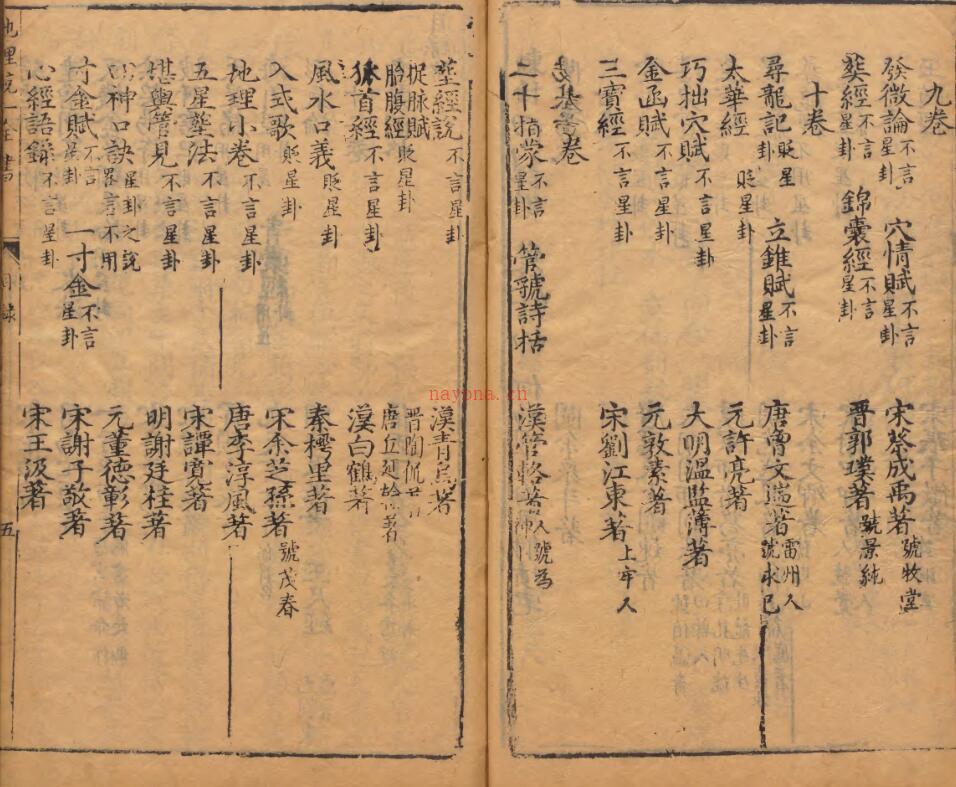 九卷
發微論不言星卦 穴情賦不言星卦 宋蔡成禹著號牧堂
葬經不言星卦 錦囊經不言星卦 晋郭璞著號景純
十卷
尋龍記貶星卦 立錐賦不言星卦 唐曾文遄著雷州人號求已
太華經貶星卦 元許亮著
巧拙穴賦不言星卦 大明溫監簿著
金函賦不言星卦 元敦素著
三寶經不言星卦 宋劉江東著上牢人
卷
二十指蒙不言星卦 管虢詩括 漢管輅著號為神人
葬經說不言星卦 漢青烏著
捉脉賦貶星卦 晋陶侃著
胎腹經 唐丘延翰著
狐首經不言星卦 漢白鶴著
風水口義貶星卦 秦樗里著
入式歌貶星卦 宋余芝孫著號茂春
地理小卷不言星卦 唐李淳風著
五星葬法不言星卦 宋譚寬著
堪輿管見不言星卦 明謝廷柱著
神口訣星卦之說畧言不用 元董德彰著
寸金賦不言星卦 一寸金不言星卦 宋謝子敬著
心經語錄不言星卦 宋王汲著
地理統一全書
目錄
五
nayona.cn